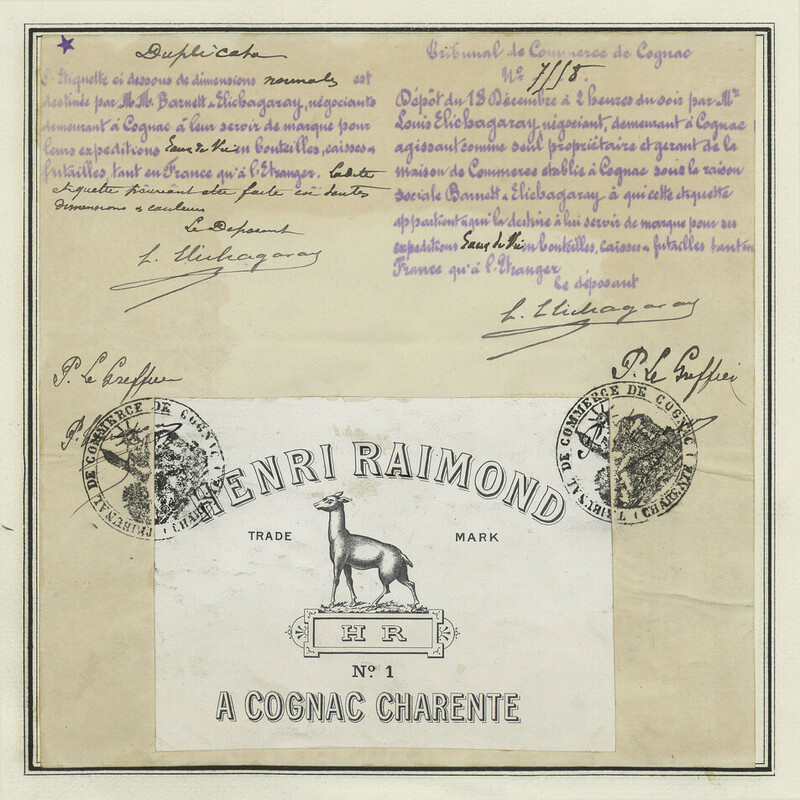 Duplicata
L'Etiquette ci dessous de dimensions normales est
destinée par M.M. Barnett & Elichagaray, négociants
demeurant à Cognac à leur servir de marque pour
leurs expeditions Eaux de Vie en bouteilles, caisses &
futailles, tant en France qu'à l'Etranger. Ladite
etiquette pouvant etre faite en toutes
dimensions & couleurs
Le Déposant
L. Elichagaray
Tribunal de Commerce de Cognac
No
Dépôt du 18 Décembre à 2 heures du soir par Mr
Louis Elichagaray, négociant, demeurant à Cognac
agissant comme seul propriétaire et gerant de la
maison de Commerce etablie à Cognac sous la raison
sociale Barnett & Elichagaray à qui cette étiquette
appartient & qui la destine à lui servir de marque pour ses
expeditions Eaux de Vie en bouteilles, caisses & futailles tant en
France qu'à l'Etranger
Le déposant
L. Elichagaray
P. Le Greffier
P. Le Greffier
P.
TRIBUNAL DE COMMERCE DE COGNAC (CHARENTE)
TRIBUNAL DE COMMERCE DE COGNAC (CHARENTE)
HENRI RAIMOND
TRADE MARK
H R
No. 1
A COGNAC CHARENTE